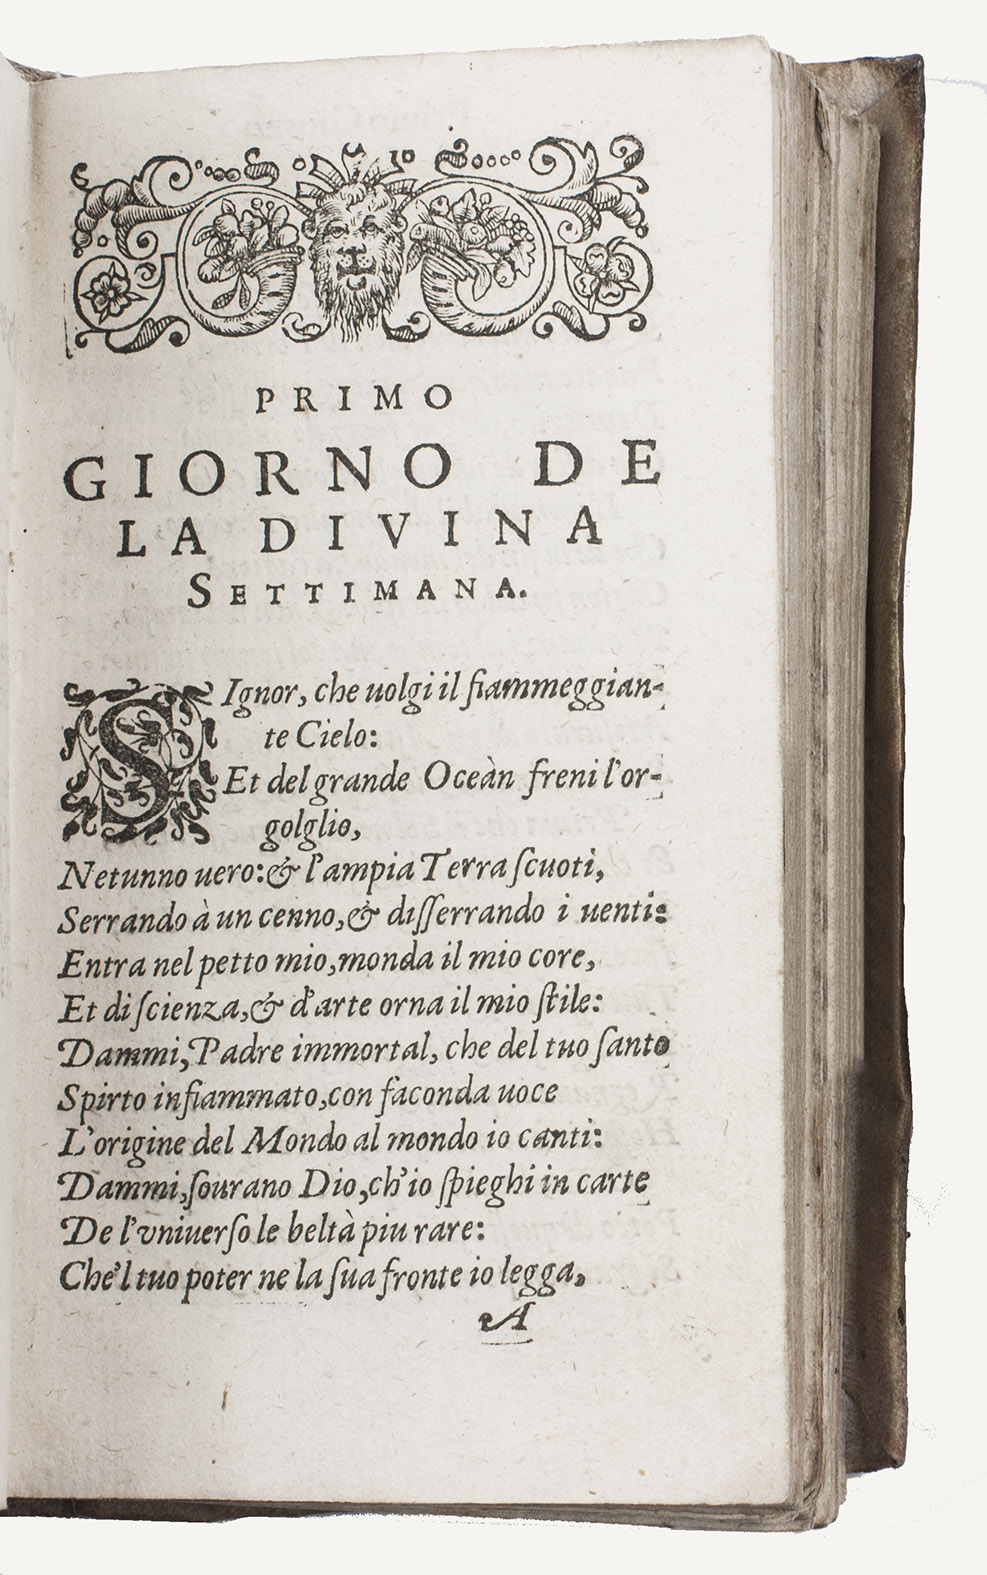 PRIMO
GIORNO DE
LA DIVINA
SETTIMANA.
SIgnor, che uolgi il fiammeggian-
te Cielo:
Et del grande Oceàn freni l'or-
golglio,
Netunno uero: & l'ampia Terra ſcuoti,
Serrando à un cenno, & diſſerrando i uenti:
Entra nel petto mio, monda il mio core,
Et di ſcienza, & d'arte orna il mio ſtile:
Dammi, Padre immortal, che del tuo ſanto
Spirto infiammato, con faconda uoce
L'origine del Mondo al mondo io canti:
Dammi, ſourano Dio, ch'io ſpieghi in carte
De l'vniuerſo le beltà piu rare:
Che'l tuo poter ne la ſua fronte io legga,
A